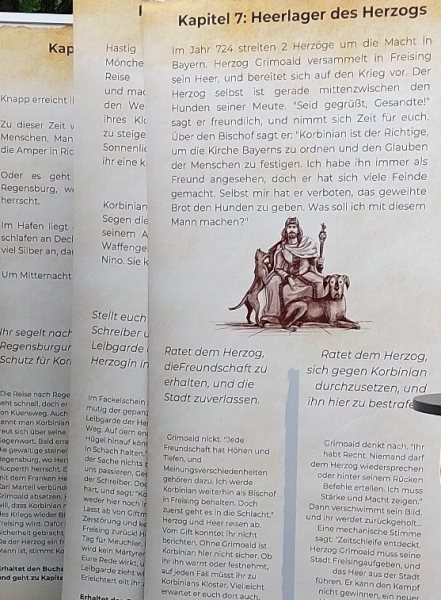 Kap
Knapp erreicht i
Zu dieser Zeit v
Menschen, Man
die Amper in Ric
Oder es geht
Regensburg, w
herrscht.
Im Hafen liegt
schlafen an Deck
viel Silber an, da
Um Mitternacht
Ihr segelt nach
Regensburgur
Schutz für Kor
Die Reise nach Rege
Hastig
Mönche
Reise
und mac
den We
ihres Klo
zu steige
Sonnenlic
ihr eine k
Korbinian
Segen die
seinem A
Waffenge
Nino. Sie k
Stellt euch
Schreiber u
Leibgarde
Herzogin in
Im Fackelschein
mutig der gepanz
Leibgarde der He
Weg. Auf dem en
Hügel hinauf kön
in Schach halten."
der Sache nichts z
uns passieren, Ge
der Schreiber. Doc
hart, und sagt: "Ko
weder hier noch i
Lasst ab von Giftm
Zerstörung und ke
Freising zurück! H
Tag für Meuchler,
wird kein Märtyrer
Eure Rede wirkt, u
Leibgarde zieht wi
Erleichtert eilt ihr
Kapitel 7: Heerlager des Herzogs
Im Jahr 724 streiten 2 Herzöge um die Macht in
Bayern. Herzog Grimoald versammelt in Freising
sein Heer, und bereitet sich auf den Krieg vor. Der
Herzog selbst ist gerade mittenzwischen den
Hunden seiner Meute. "Seid gegrüßt, Gesandte!"
sagt er freundlich, und nimmt sich Zeit für euch.
Über den Bischof sagt er: "Korbinian ist der Richtige,
um die Kirche Bayerns zu ordnen und den Glauben
der Menschen zu festigen. Ich habe ihn immer als
Freund angesehen, doch er hat sich viele Feinde
gemacht. Selbst mir hat er verboten, das geweihte
Brot den Hunden zu geben. Was soll ich mit diesem
Mann machen?"
Ratet dem Herzog,
dieFreundschaft zu
erhalten, und die
Stadt zuverlassen.
Grimoald nickt. "Jede
Freundschaft hat Höhen und
Tiefen, und
Meinungsverschiedenheiten
gehören dazu. Ich werde
Korbinian weiterhin als Bischof
in Freising behalten. Doch
zuerst geht es in die Schlacht."
Herzog und Heer reisen ab.
Vom Gift konntet ihr nicht
berichten. Ohne Grimoald ist
Korbinian hier nicht sicher. Ob
ihr ihn warnt oder festnehmt,
auf jeden Fall müsst ihr zu
Korbinians Kloster. Vielleicht
erwartet er euch dort auch,
Ratet dem Herzog,
sich gegen Korbinian
durchzusetzen, und
ihn hier zu bestrafe
Grimoald denkt nach. "Ihr
habt Recht. Niemand darf
dem Herzog wiedersprechen
oder hinter seinem Rücken
Befehle erteilen. Ich muss
Stärke und Macht zeigen."
Dann verschwimmt sein Bild,
und ihr werdet zurückgeholt...
Eine mechanische Stimme
sagt: "Zeitschleife entdeckt.
Herzog Grimoald muss seine
Stadt Freisingaufgeben, und
das Heer aus der Stadt
führen. Er kann den Kampf
nicht gewinnen, ein neuer